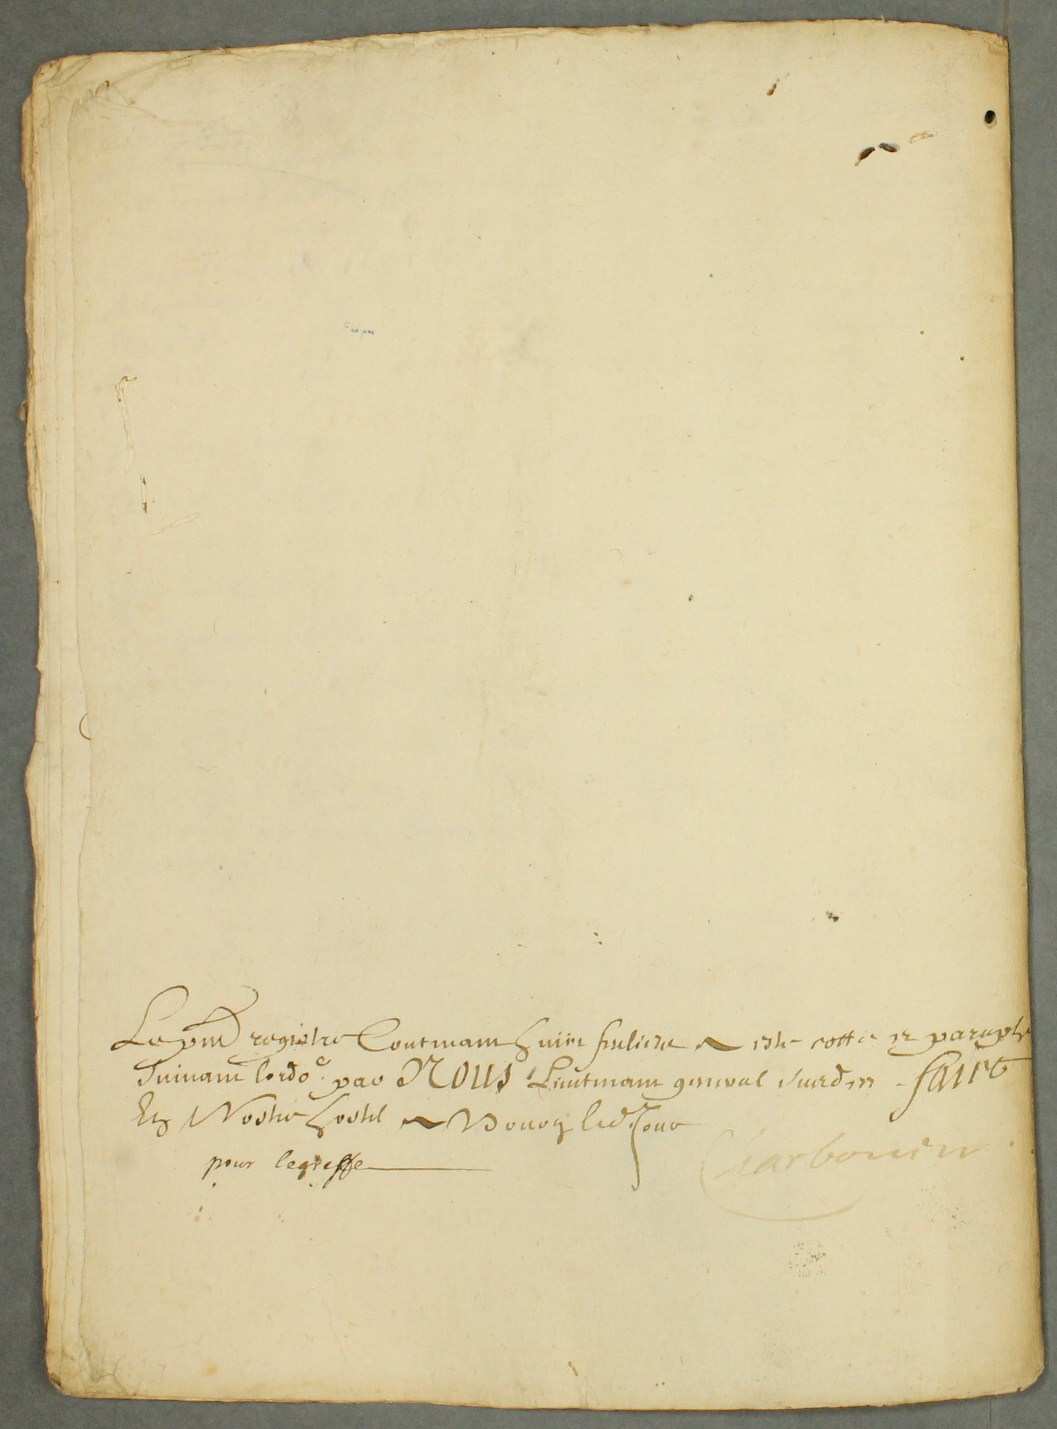 Le pnt registre Contenant huict feuliets a este cotte et paraphe
Suivant lordoce par Nous Lieutenant general susdit faict
En Nostre hostel a Bourg led Jour
pour legreffe
Charbonen